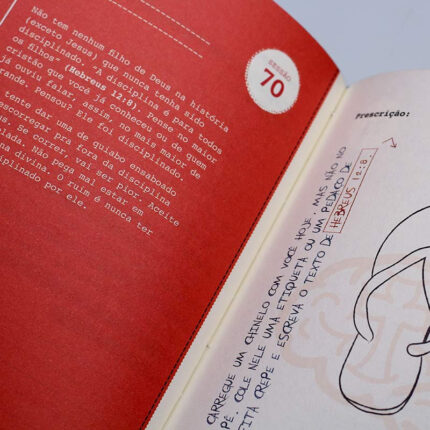 Não tem nenhum filho de Deus na história
(exceto Jesus) que nunca tenha sido
disciplinado. "A disciplina é para todos
os filhos" (Hebreus 12:8). Pense no maior
cristão que você já conheceu ou de quem
já ouviu falar, assim, no mais maior de
grande. Pensou? Ele foi disciplinado.
tente dar uma de quiabo ensaboado
escorregar pra fora da disciplina
s. Se correr, vai ser pior. Aceite
lada. Não pega mal estar em
na divina. O ruim é nunca ter
iplinado por ele.
SESSÃO
70
Prescrição:
CARREGUE UM CHINELO COM VOCÊ HOJE. MAS NÃO NO
PÉ. COLE NELE UMA ETIQUETA OU UM PEDAÇO DE
FITA CREPE E ESCREVA O TEXTO DE HEBREUS 12:8.